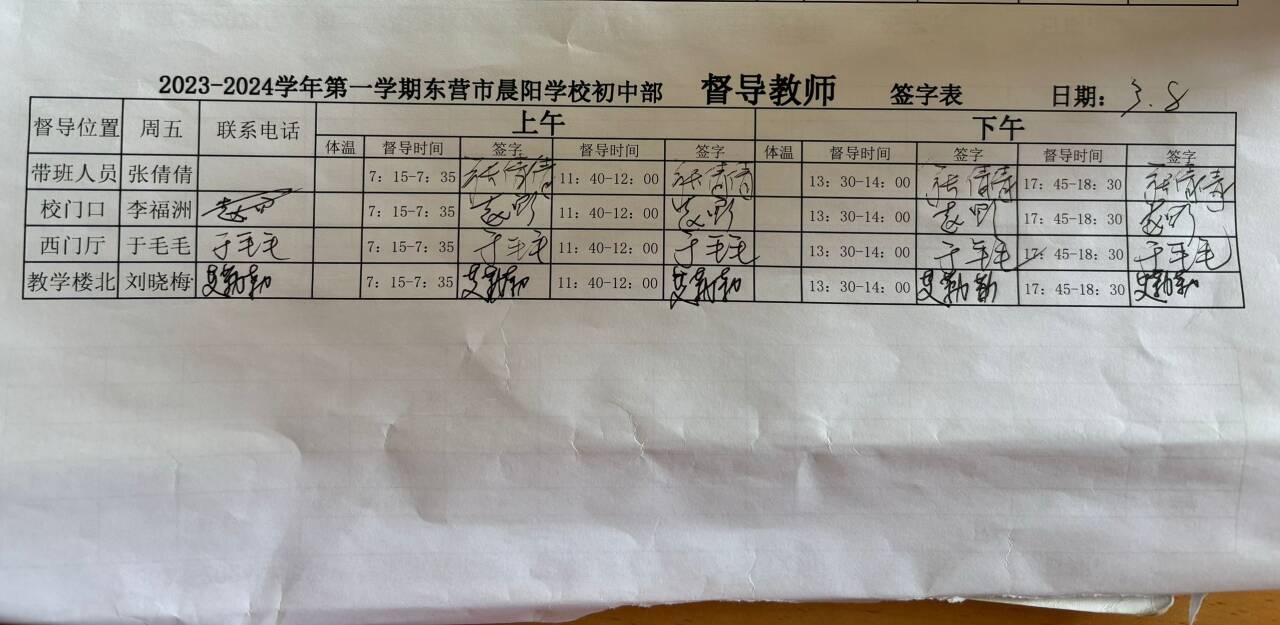 2023-2024学年第一学期东营市晨阳学校初中部 督导教师 签字表 日期：3.8
督导位置 周五 联系电话 上午 下午
体温 督导时间 签字 督导时间 签字 体温 督导时间 签字 督导时间 签字
带班人员 张倩倩 7：15-7：35 张倩倩 11：40-12：00 张倩倩 13：30-14：00 张倩倩 17：45-18：30 张倩倩
校门口 李福洲 7：15-7：35 11：40-12：00 13：30-14：00 17：45-18：30
西门厅 于毛毛 于毛毛 7：15-7：35 于毛毛 11：40-12：00 于毛毛 13：30-14：00 于毛毛 17：45-18：30 于毛毛
教学楼北 刘晓梅 7：15-7：35 11：40-12：00 13：30-14：00 17：45-18：30